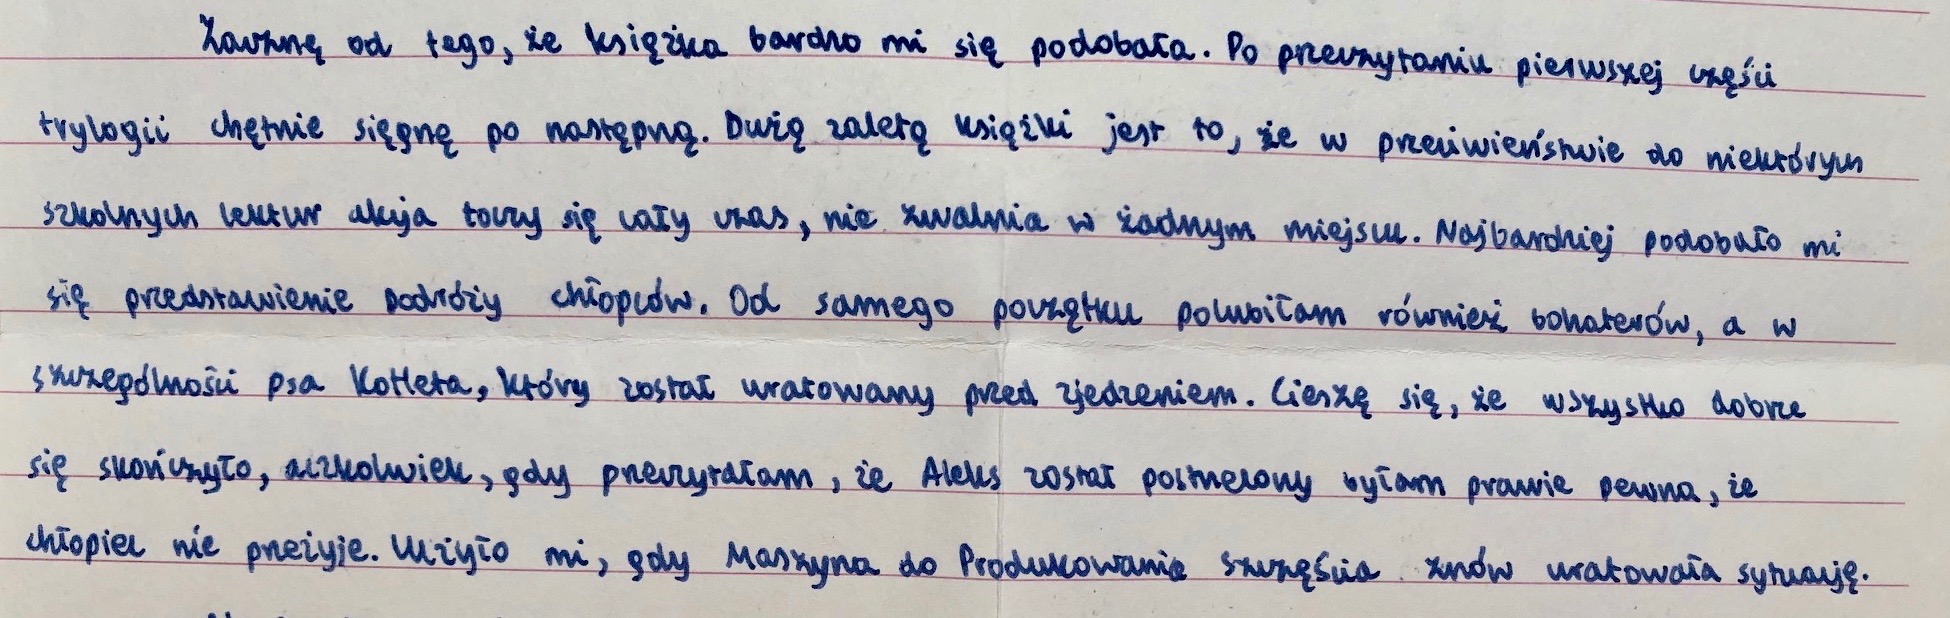 Zacznę od tego, że książka bardzo mi się podobała. Po przeczytaniu pierwszej części
trylogii chętnie sięgnę po następną. Dużą zaletą książki jest to, że w przeciwieństwie do niektórych
szkolnych lektur akcja toczy się cały czas, nie zwalnia w żadnym miejscu. Najbardziej podobało mi
się przedstawienie podróży chłopców. Od samego początku polubiłam również bohaterów, a w
szczególności psa Kotleta, który został uratowany przed zjedzeniem. Cieszę się, że wszystko dobrze
się skończyło, aczkolwiek, gdy przeczytałam, że Aleks został postrzelony byłam prawie pewna, że
chłopiec nie przeżyje. Ulżyło mi, gdy Maszyna do Produkowania Szczęścia znów uratowała sytuację.